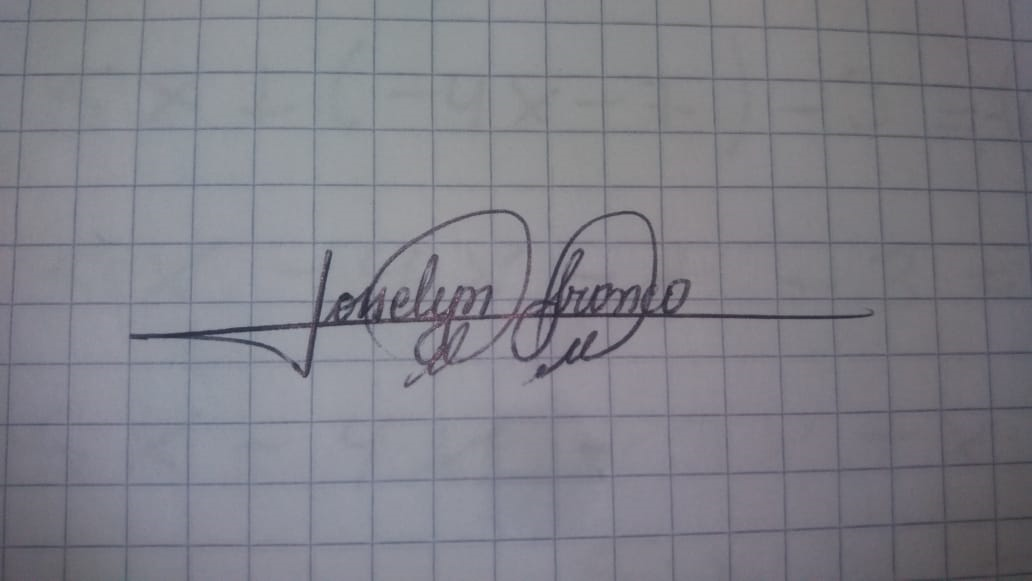 Joselyn Franco